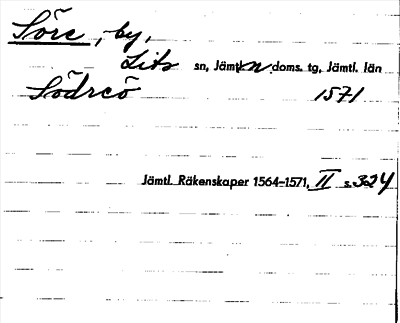 Söre, by,
Lits sn, Jämtl. n. doms. tg, Jämtl. län
Södreö 1571
Jämtl. Räkenskaper 1564-1571, II s. 324